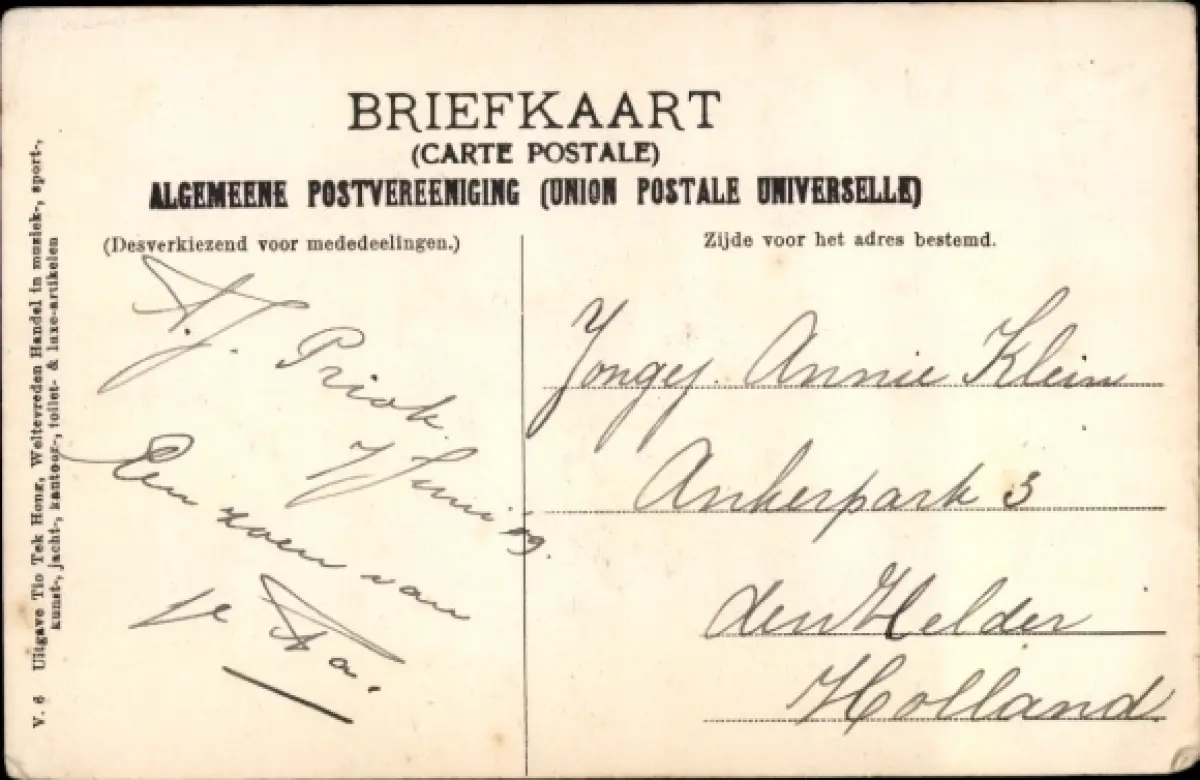 BRIEFKAART
(CARTE POSTALE)
ALGEMEENE POSTVEREENIGING (UNION POSTALE UNIVERSELLE)
(Desverkiezend voor mededeelingen.)
Zijde voor het adres bestemd.
T. J. Priok
Juni '09.
Een zoen van
je Pa.
Jongej. Annie Klein
Ankerpark 3
den Helder
Holland
V. 6 Uitgave Tio Tek Hong, Weltevreden Handel in muziek-, sport-,
kunst-, jacht-, kantoor-, toilet- & luxe-artikelen